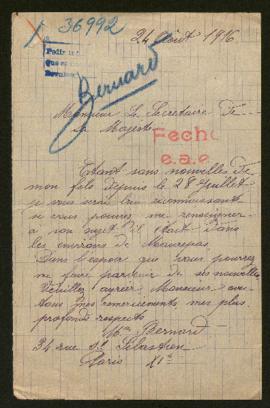 X 36992
24 Août 1916
Pedir
que
Bernard
Monsieur Le Secretaire De
sa Majeste
Fecho
e.a.e
Etant sans nouvelles de
mon fils depuis le 28 Juillet
je vous serai bien reconnaissante
si vous pouvez me renseigner
a son sujet Il etait Dans
les environs de Maurepas
Dans l'espoir que vous pourrez
me faire parvenir de ses nouvelles
Veuillez agréer Monsieur avec
tous mes remerciements mes plus
profonds respects
Mme Bernard
34 rue St Sébastien
Paris XIe